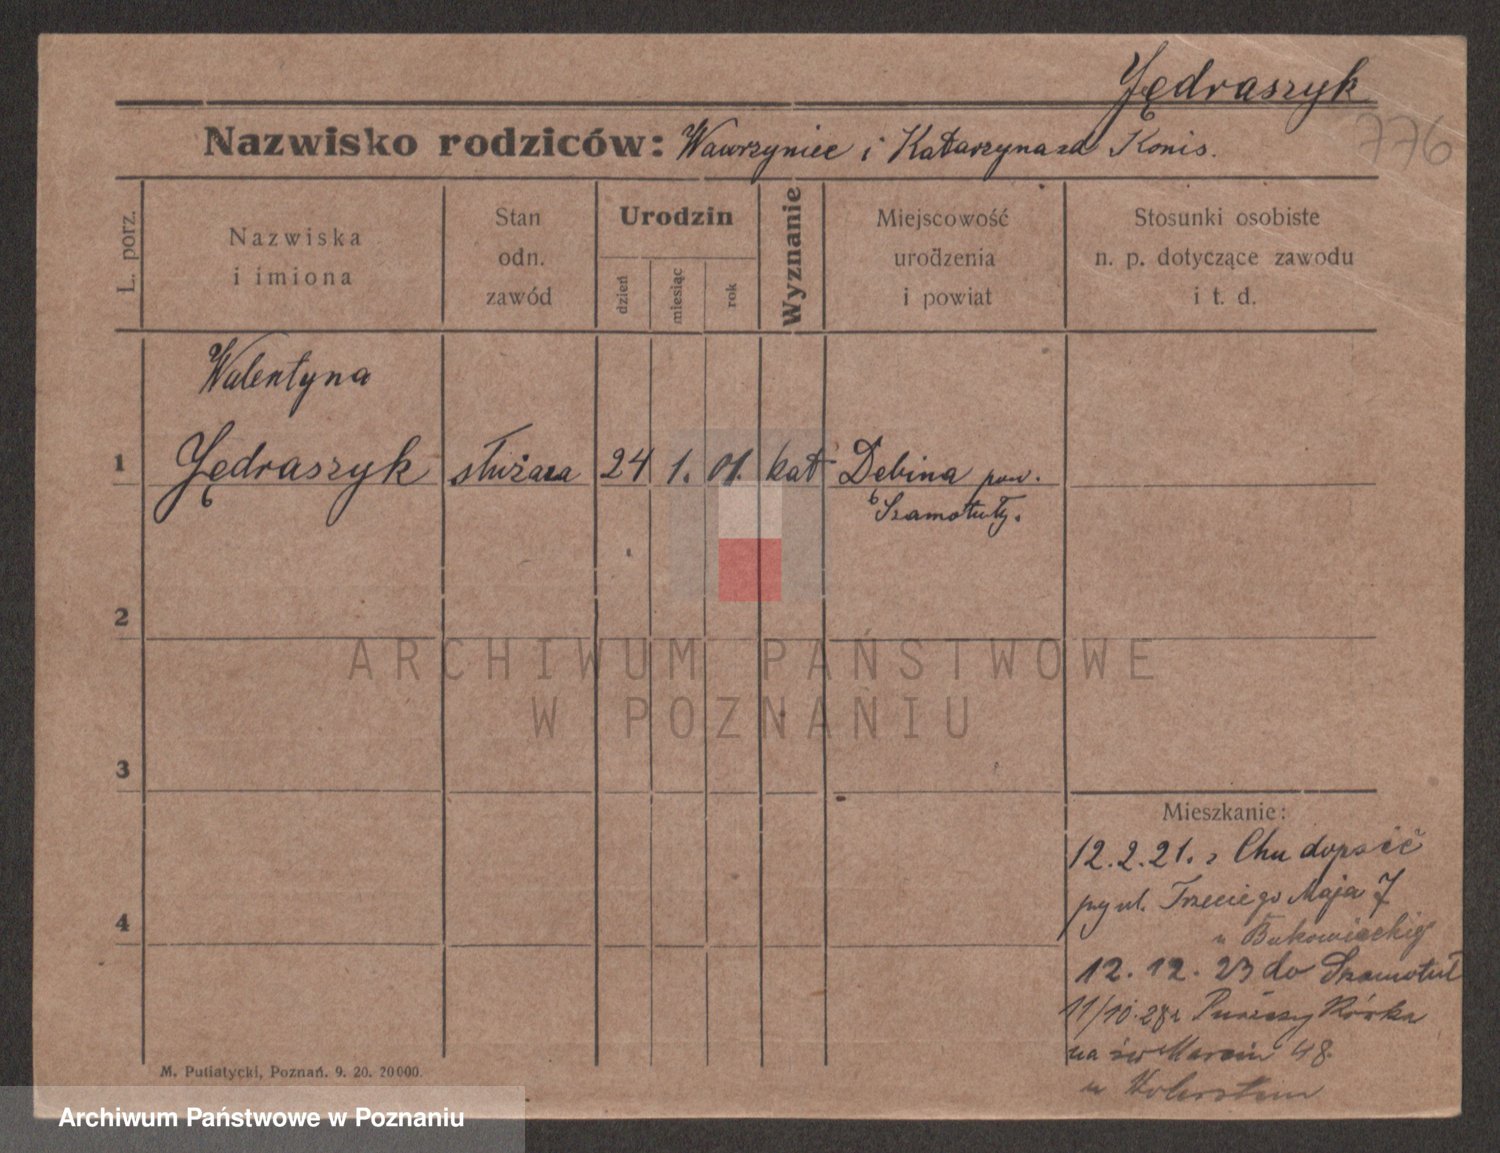 Jędraszyk
776
Nazwisko rodziców: Wawrzyniec i Katarzyna zd Konis.
L. porz.
Nazwiska
i imiona
Stan
odn.
zawód
Urodzin
dzień
miesiąc
rok
Wyznanie
Miejscowość
urodzenia
i powiat
Stosunki osobiste
n. p. dotyczące zawodu
i t. d.
Walentyna
1 Jędraszyk służąca 24 1. 01. kat Dębina pow.
Szamotuły.
2
ARCHIWUM PAŃSTWOWE
W POZNANIU
3
Mieszkanie:
12.2.21. z Chudopsic
przy ul. Trzeciego Maja 7
u
4
12.12.23 do Szamotuł
11/10.28 z
na św Marcin 48.
u
M. Putiatycki, Poznań. 9. 20. 20000.
Archiwum Państwowe w Poznaniu